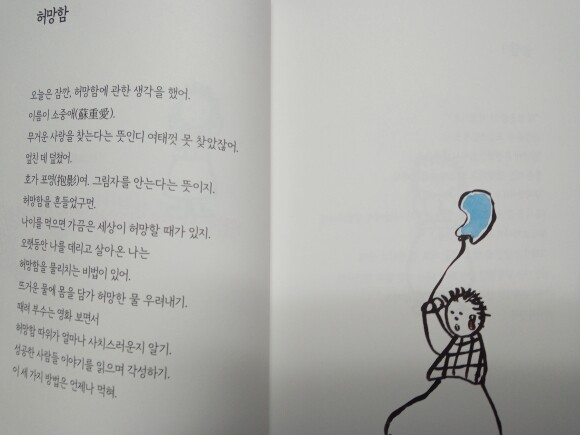 허망함
오늘은 잠깐, 허망함에 관한 생각을 했어.
이름이 소중애(蘇重愛).
무거운 사랑을 찾는다는 뜻인디 여태껏 못 찾았잖어.
엎친 데 덮쳤어.
호가 포영(抱影)여. 그림자를 안는다는 뜻이지.
허망함을 흔들었구먼.
나이를 먹으면 가끔은 세상이 허망할 때가 있지.
오랫동안 나를 데리고 살아온 나는
허망함을 물리치는 비법이 있어.
뜨거운 물에 몸을 담가 허망한 물 우려내기.
때려 부수는 영화 보면서
허망함 따위가 얼마나 사치스러운지 알기.
성공한 사람들 이야기를 읽으며 각성하기.
이 세 가지 방법은 언제나 먹혀.